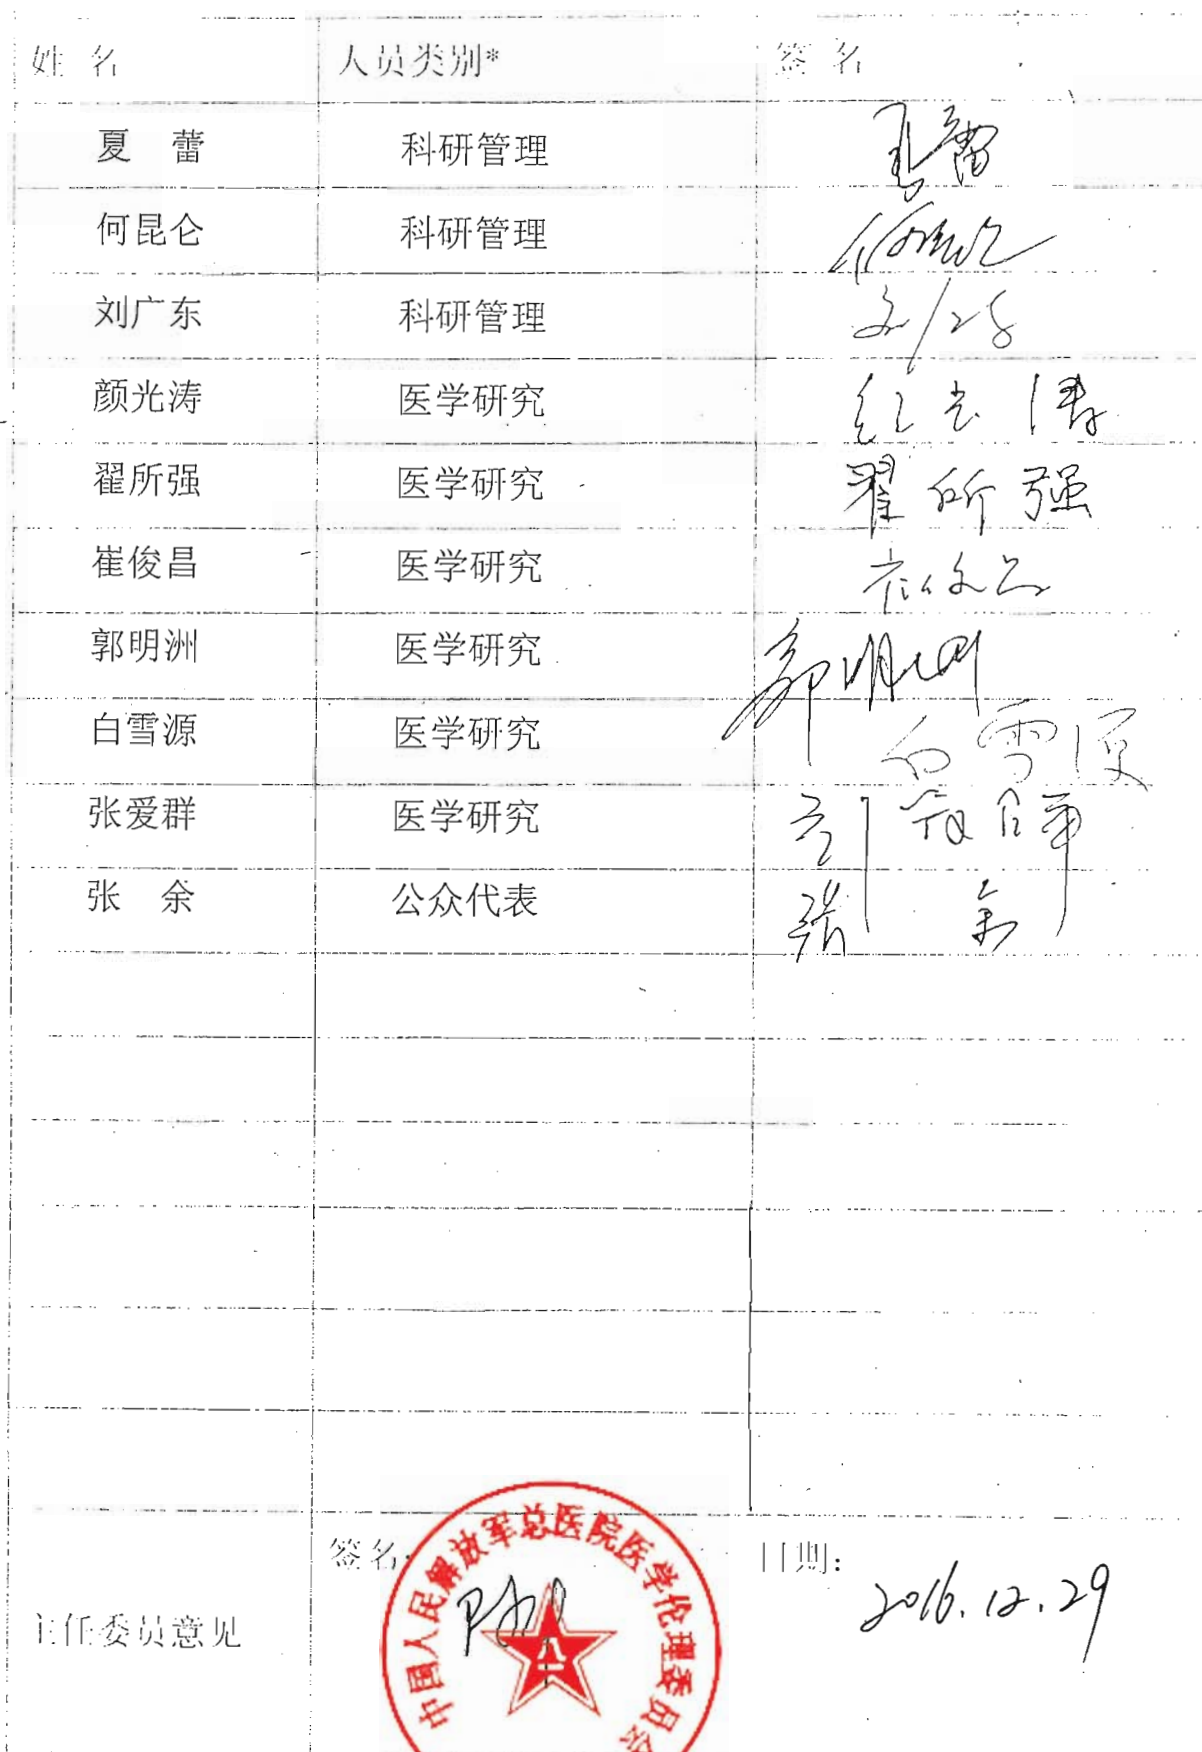 姓 名 人员类别* 签 名
夏 蕾 科研管理
何昆仑 科研管理
刘广东 科研管理
颜光涛 医学研究
翟所强 医学研究 翟所强
崔俊昌 医学研究
郭明洲 医学研究 郭明洲
白雪源 医学研究 白雪源
张爱群 医学研究
张 余 公众代表 张 余
签名: 日期:
2016.12.29
主任委员意见
中国人民解放军总医院医学伦理委员会